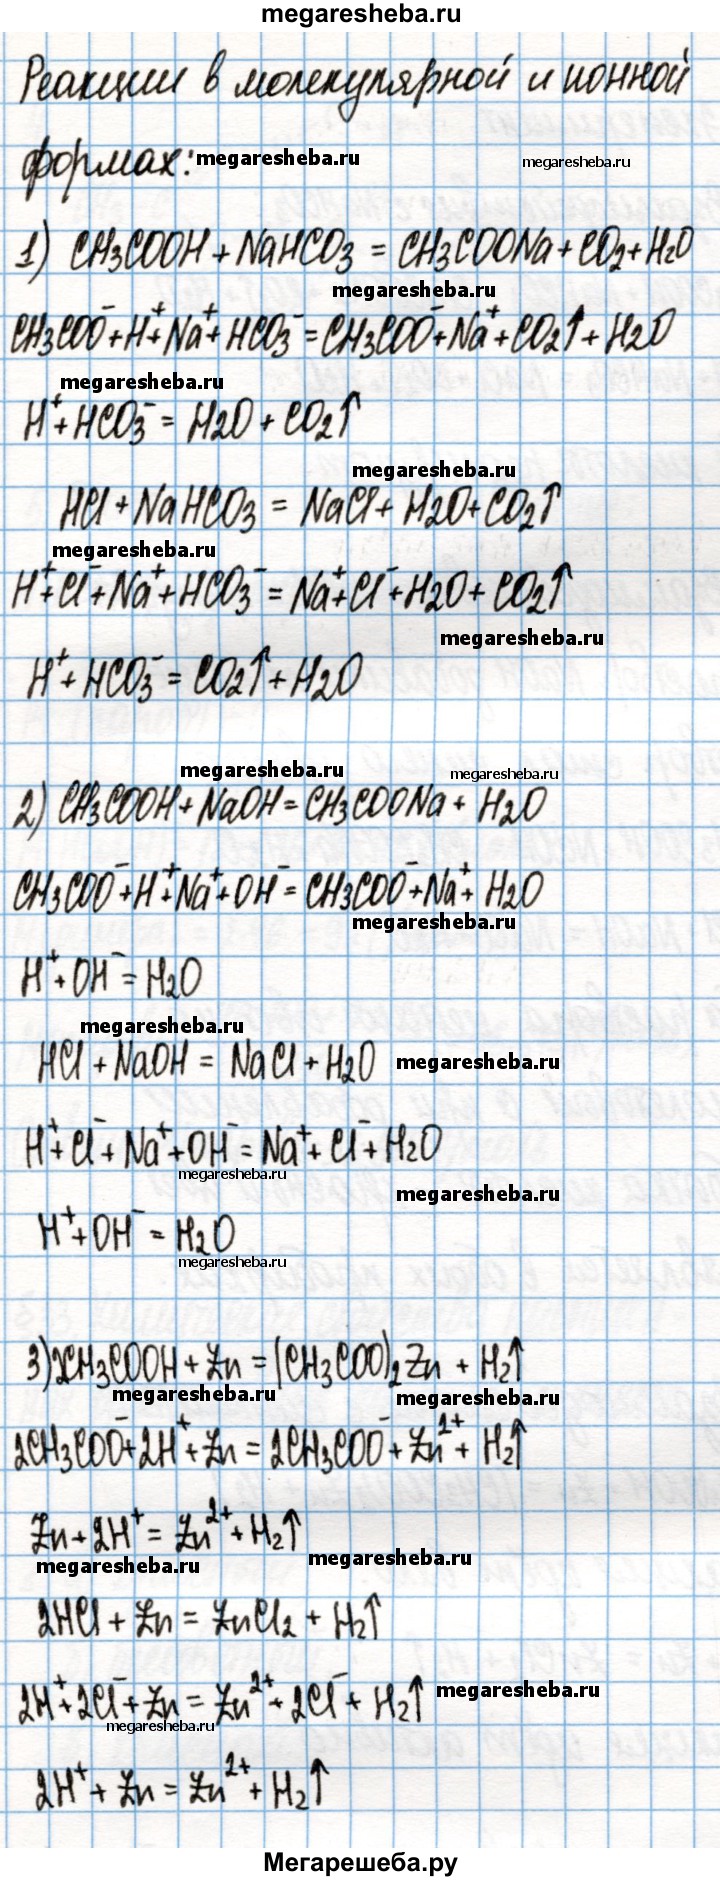 megaresheba.ru
Реакции в молекулярной и ионной
формах:
megaresheba.ru
megaresheba.ru
1) CH3COOH + NaHCO3 = CH3COONa + CO2 + H2O
megaresheba.ru
CH3COO⁻ + H⁺ + Na⁺ + HCO3⁻ = CH3COO⁻ + Na⁺ + CO2↑ + H2O
megaresheba.ru
H⁺ + HCO3⁻ = H2O + CO2↑
megaresheba.ru
HCl + NaHCO3 = NaCl + H2O + CO2↑
megaresheba.ru
H⁺ + Cl⁻ + Na⁺ + HCO3⁻ = Na⁺ + Cl⁻ + H2O + CO2↑
megaresheba.ru
H⁺ + HCO3⁻ = CO2↑ + H2O
megaresheba.ru
megaresheba.ru
2) CH3COOH + NaOH = CH3COONa + H2O
CH3COO⁻ + H⁺ + Na⁺ + OH⁻ = CH3COO⁻ + Na⁺ + H2O
megaresheba.ru
H⁺ + OH⁻ = H2O
megaresheba.ru
HCl + NaOH = NaCl + H2O
megaresheba.ru
H⁺ + Cl⁻ + Na⁺ + OH⁻ = Na⁺ + Cl⁻ + H2O
megaresheba.ru
megaresheba.ru
H⁺ + OH⁻ = H2O
megaresheba.ru
3) 2CH3COOH + Zn = (CH3COO)2Zn + H2↑
megaresheba.ru
megaresheba.ru
2CH3COO⁻ + 2H⁺ + Zn = 2CH3COO⁻ + Zn²⁺ + H2↑
Zn + 2H⁺ = Zn²⁺ + H2↑
megaresheba.ru
megaresheba.ru
2HCl + Zn = ZnCl2 + H2↑
2H⁺ + 2Cl⁻ + Zn = Zn²⁺ + 2Cl⁻ + H2↑
megaresheba.ru
megaresheba.ru
2H⁺ + Zn = Zn²⁺ + H2↑
Мегарешеба.ру